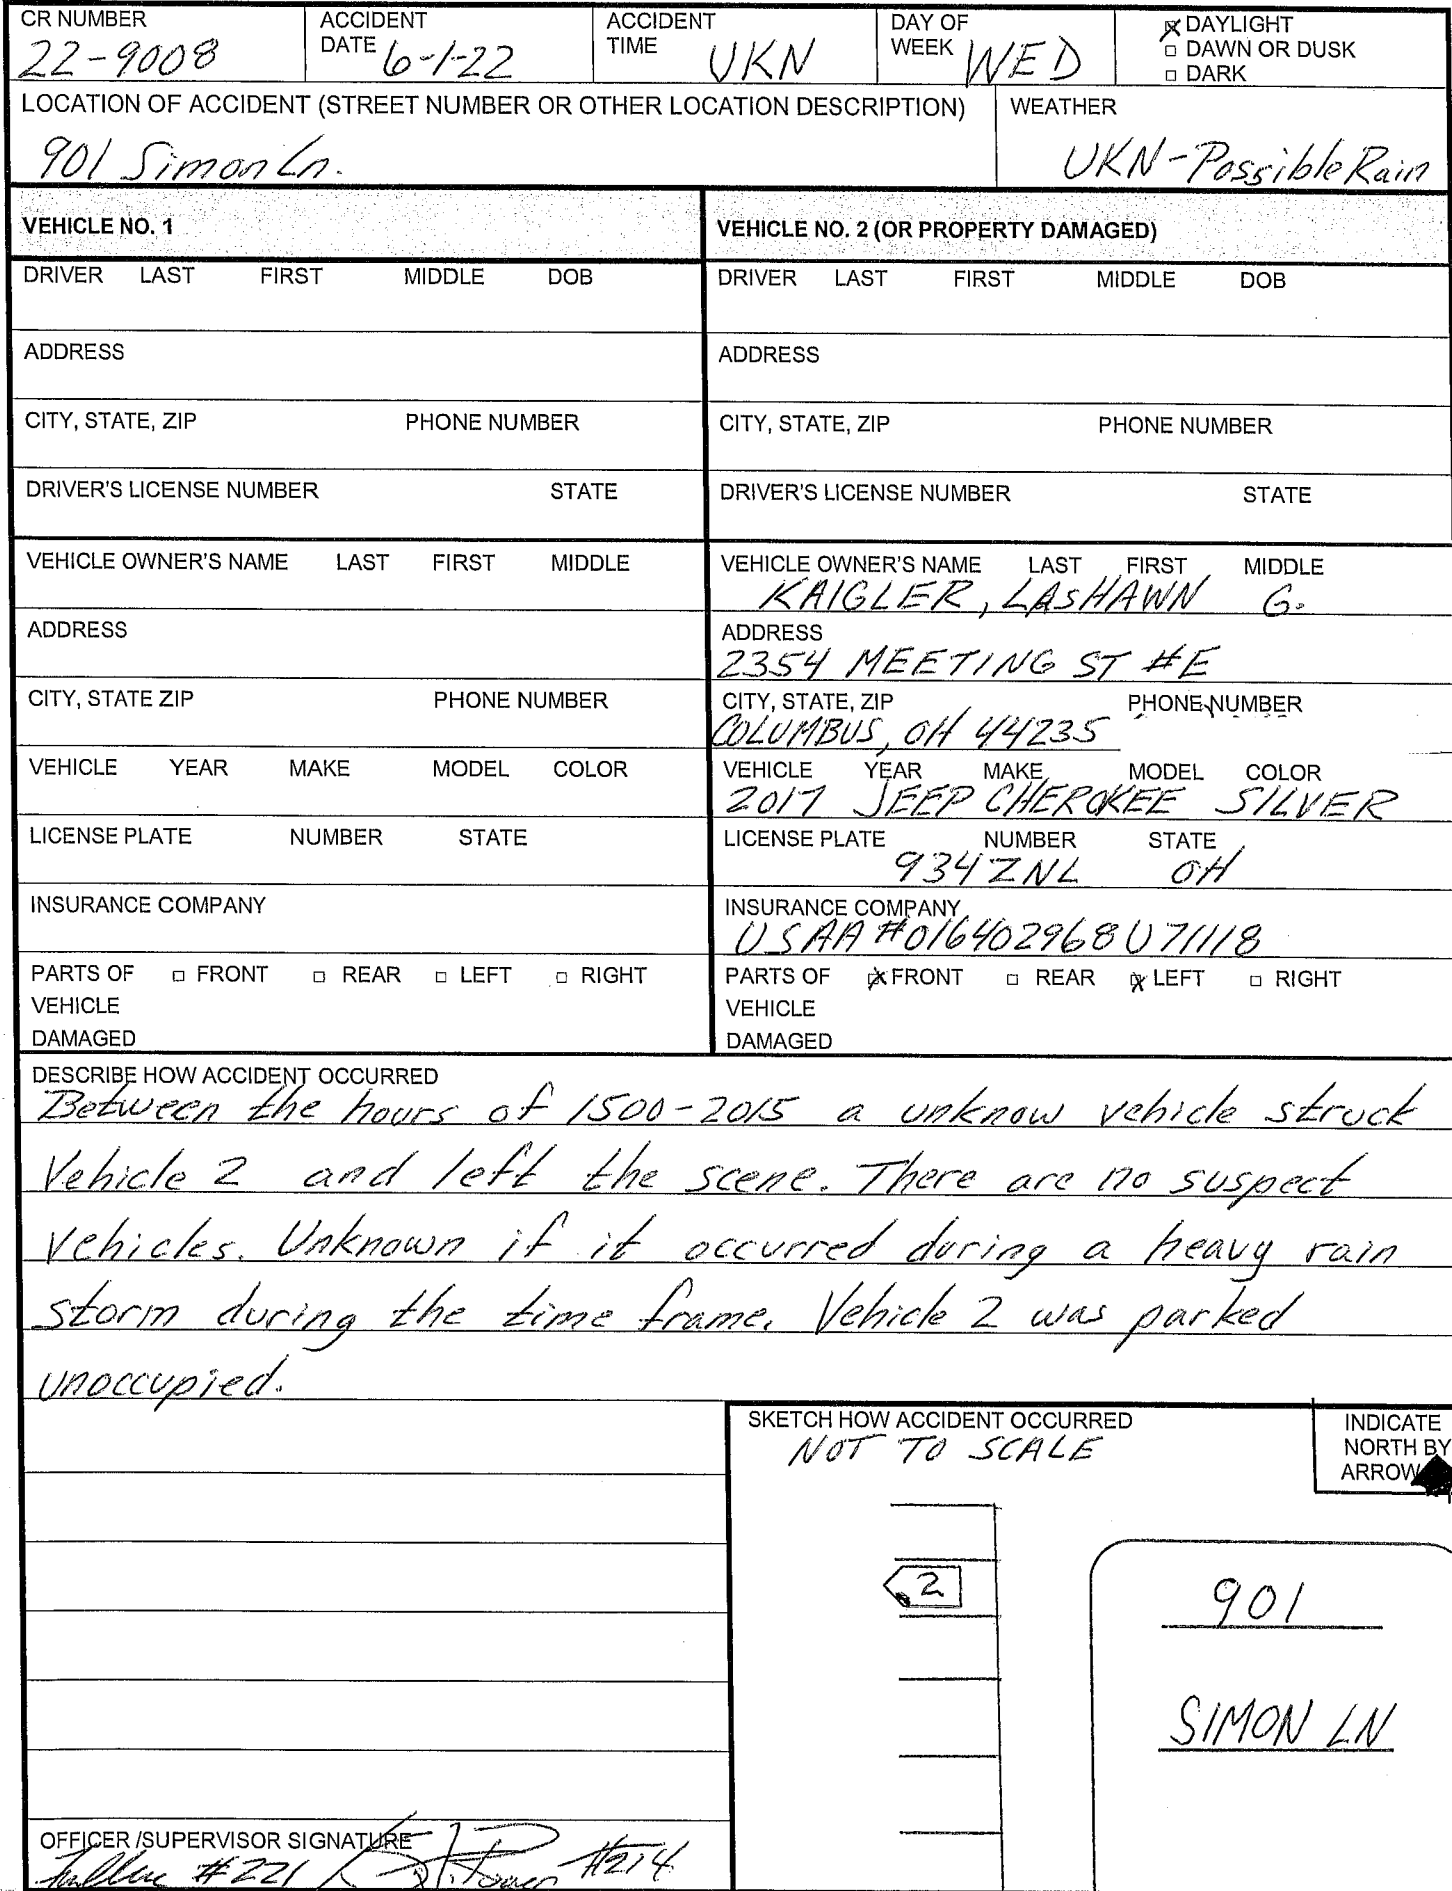 CR NUMBER
22-9008
ACCIDENT
DATE 6-1-22
ACCIDENT
TIME UKN
DAY OF
WEEK WED
DAYLIGHT
DAWN OR DUSK
DARK
LOCATION OF ACCIDENT (STREET NUMBER OR OTHER LOCATION DESCRIPTION)
901 Simon Ln.
WEATHER
UKN-Possible Rain
VEHICLE NO. 1
DRIVER LAST FIRST MIDDLE DOB
ADDRESS
CITY, STATE, ZIP PHONE NUMBER
DRIVER'S LICENSE NUMBER STATE
VEHICLE OWNER'S NAME LAST FIRST MIDDLE
ADDRESS
CITY, STATE ZIP PHONE NUMBER
VEHICLE YEAR MAKE MODEL COLOR
LICENSE PLATE NUMBER STATE
INSURANCE COMPANY
PARTS OF FRONT REAR LEFT RIGHT
VEHICLE
DAMAGED
VEHICLE NO. 2 (OR PROPERTY DAMAGED)
DRIVER LAST FIRST MIDDLE DOB
ADDRESS
CITY, STATE, ZIP PHONE NUMBER
DRIVER'S LICENSE NUMBER STATE
VEHICLE OWNER'S NAME LAST FIRST MIDDLE
KAIGLER, LASHAWN G.
ADDRESS
2354 MEETING ST #E
CITY, STATE, ZIP PHONE NUMBER
COLUMBUS, OH 44235
VEHICLE YEAR MAKE MODEL COLOR
2017 JEEP CHEROKEE SILVER
LICENSE PLATE NUMBER STATE
934ZNL OH
INSURANCE COMPANY
USAA #016402968U71118
PARTS OF FRONT REAR LEFT RIGHT
VEHICLE
DAMAGED
DESCRIBE HOW ACCIDENT OCCURRED
Between the hours of 1500-2015 a unknow vehicle struck
Vehicle 2 and left the scene. There are no suspect
vehicles. Unknown if it occurred during a heavy rain
storm during the time frame. Vehicle 2 was parked
unoccupied.
SKETCH HOW ACCIDENT OCCURRED
NOT TO SCALE
INDICATE
NORTH BY
ARROW
2
901
SIMON LN
OFFICER /SUPERVISOR SIGNATURE
#221 #214